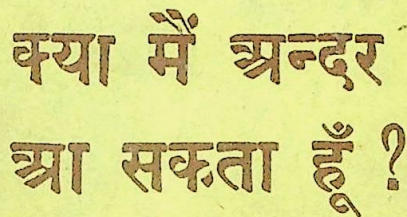 क्या मैं अन्दर
आ सकता हूँ ?